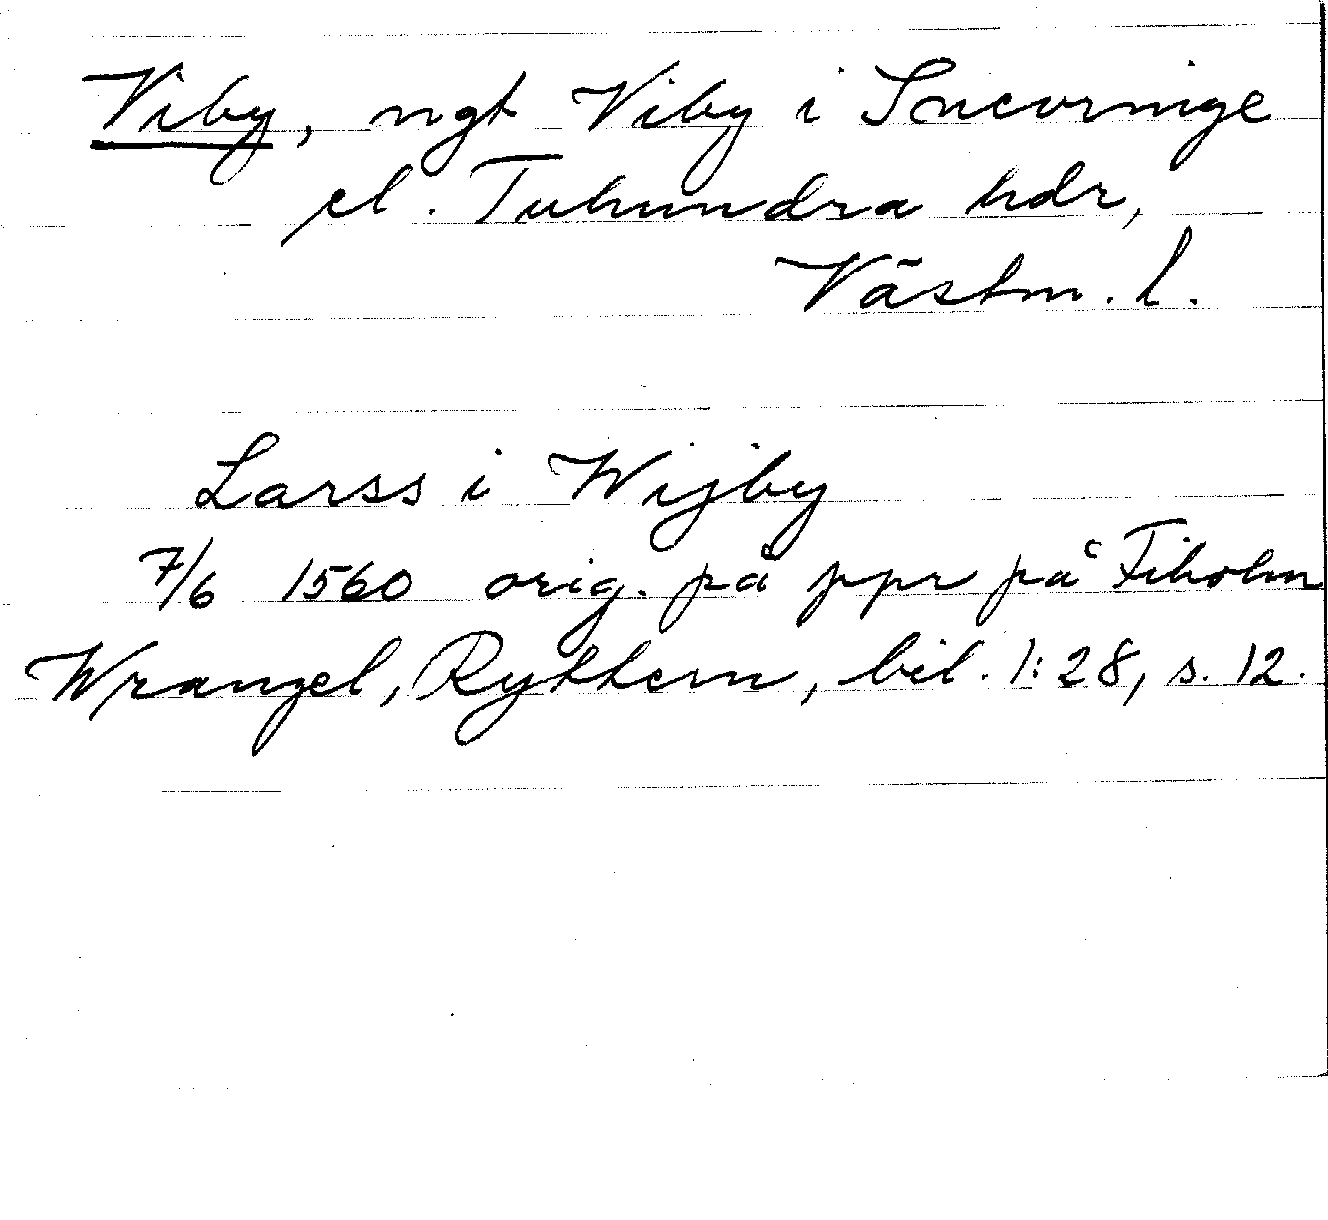 Viby, ngt Viby i Snevringe
el. Tuhundra hdr,
Västm. l.
Larss i Wijby
7/6 1560 orig. på ppr på Fiholm
Wrangel, Ryttern, bil. 1:28, s. 12.